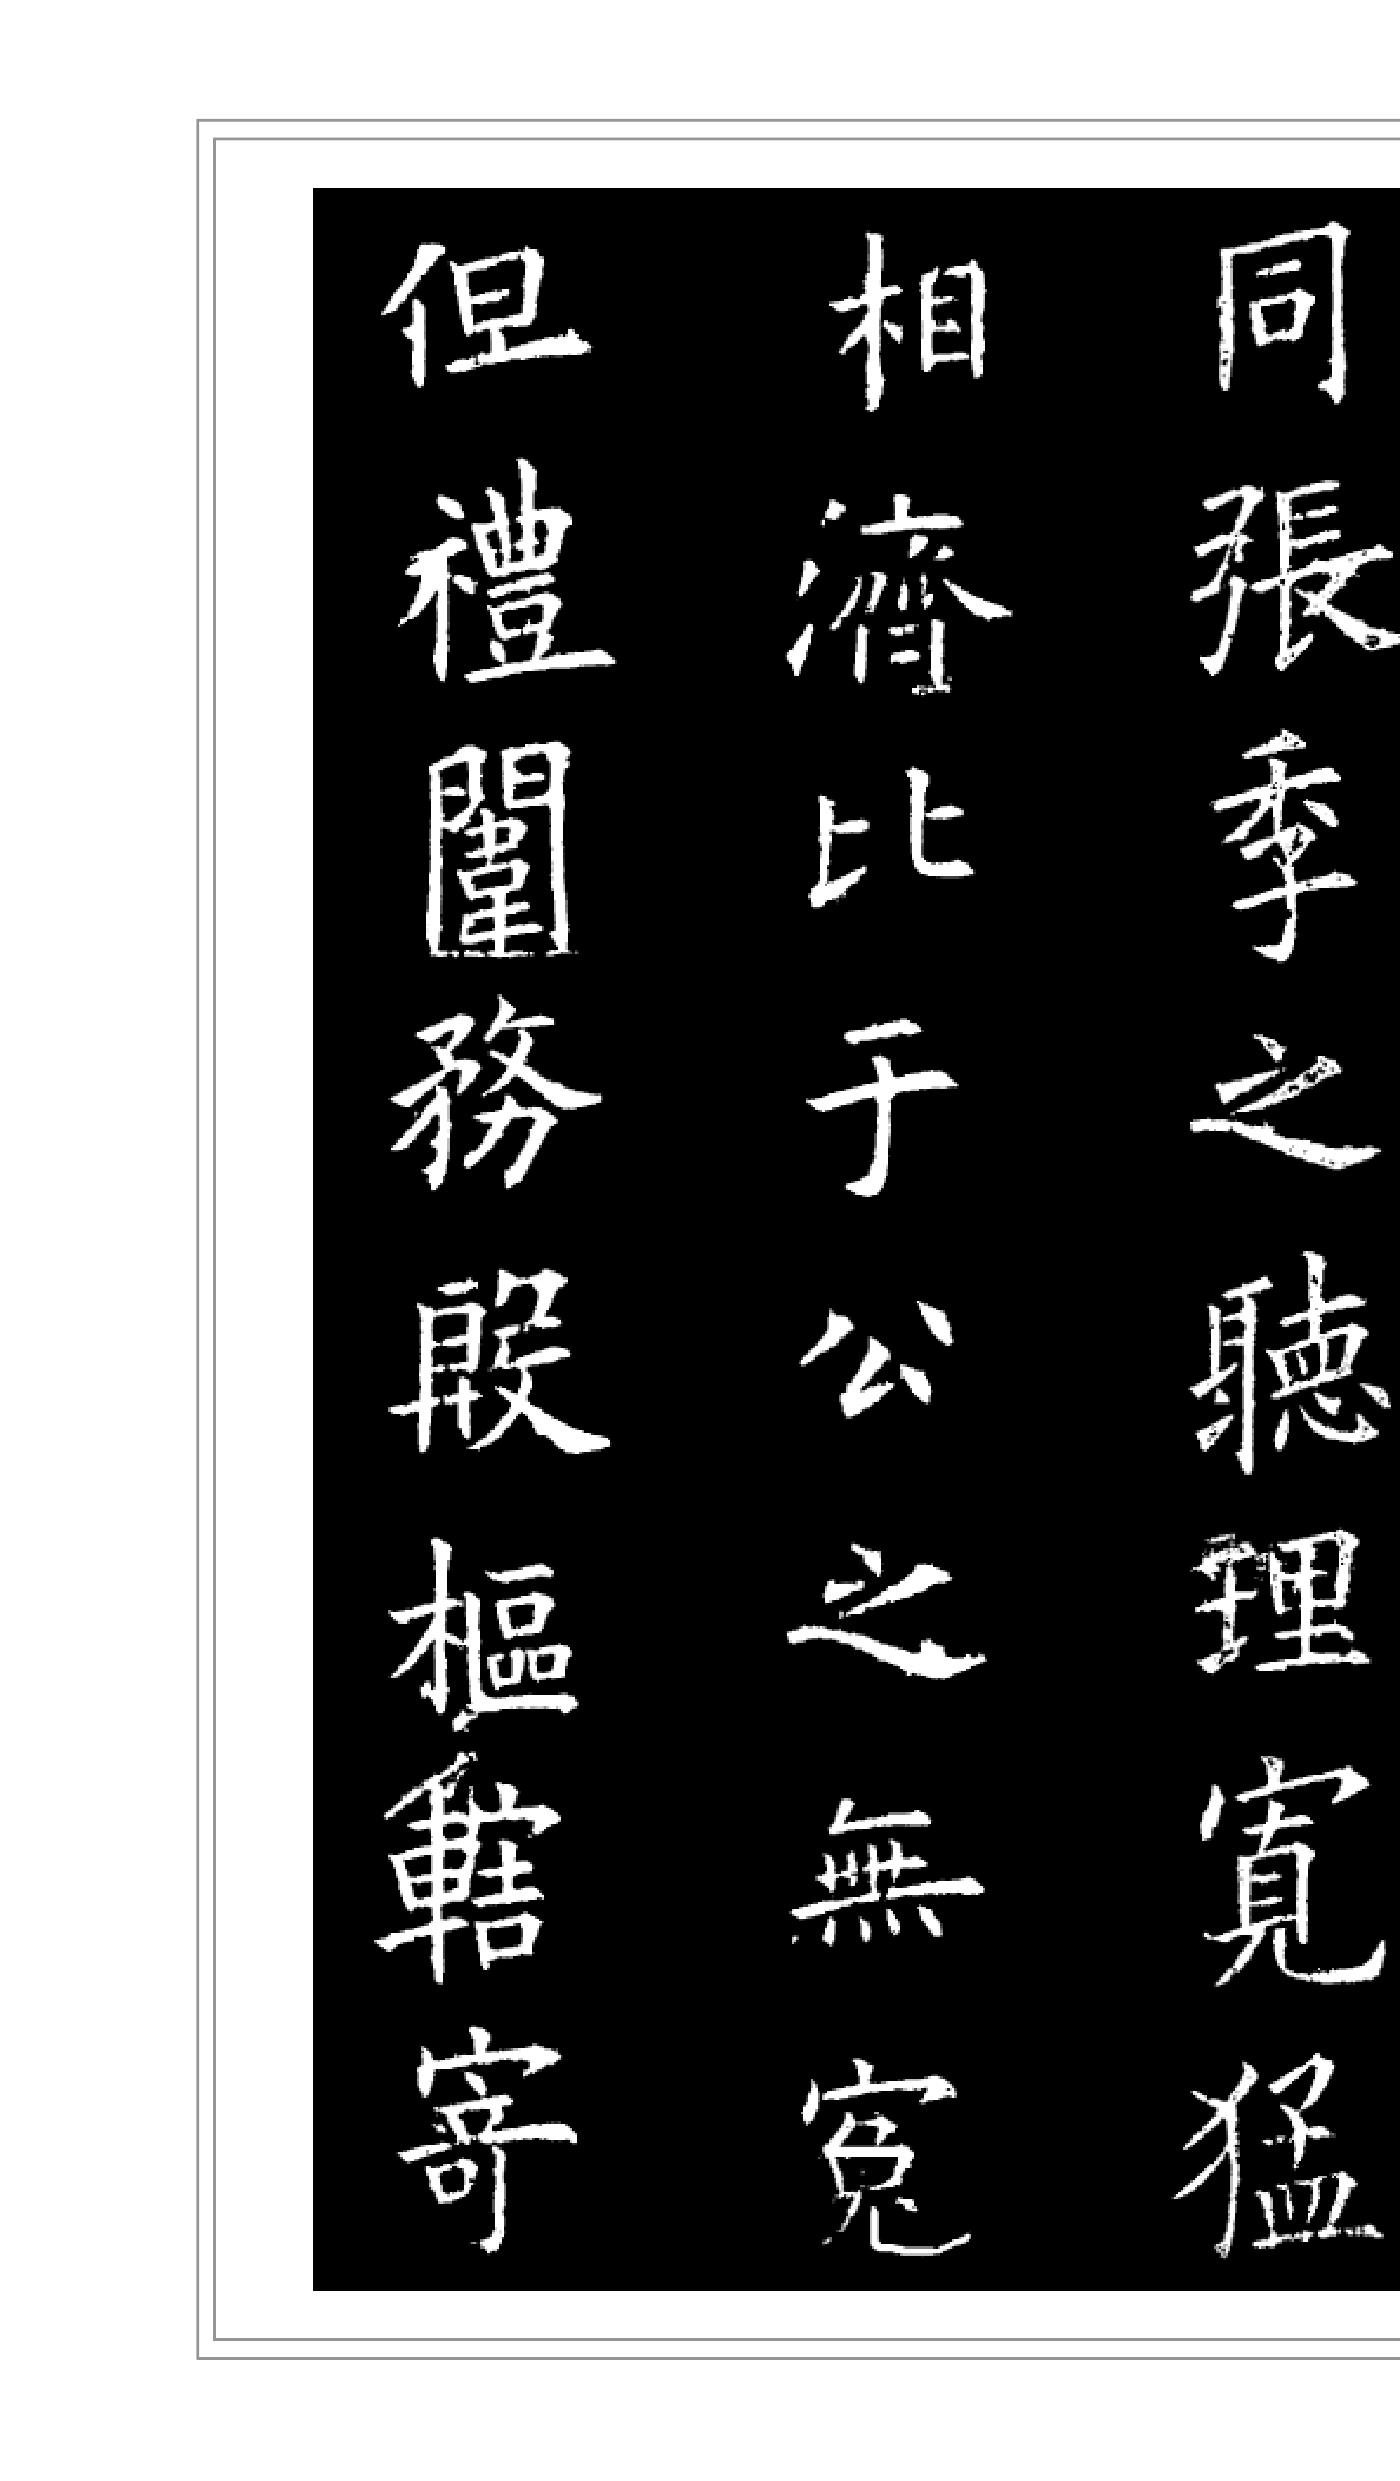 同張季之聽理寬猛
相濟比于公之無冤
但禮闈務殷樞轄寄